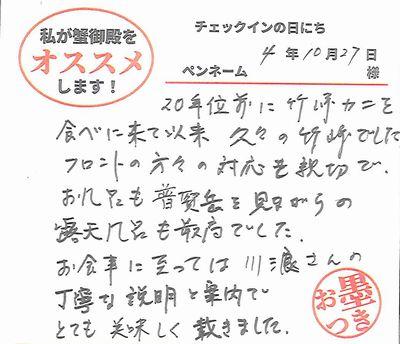 私が蟹御殿を
オススメ
します！
チェックインの日にち
4年10月27日
ペンネーム 様
20年位前に竹崎カニを
食べに来て以来 久々の竹崎でした
フロントの方々の対応も親切で、
お風呂も普賢岳を見ながらの
露天風呂も最高でした.
お食事に至っては川浪さんの
丁寧な説明と案内で
とても美味しく戴きました.
お墨つき